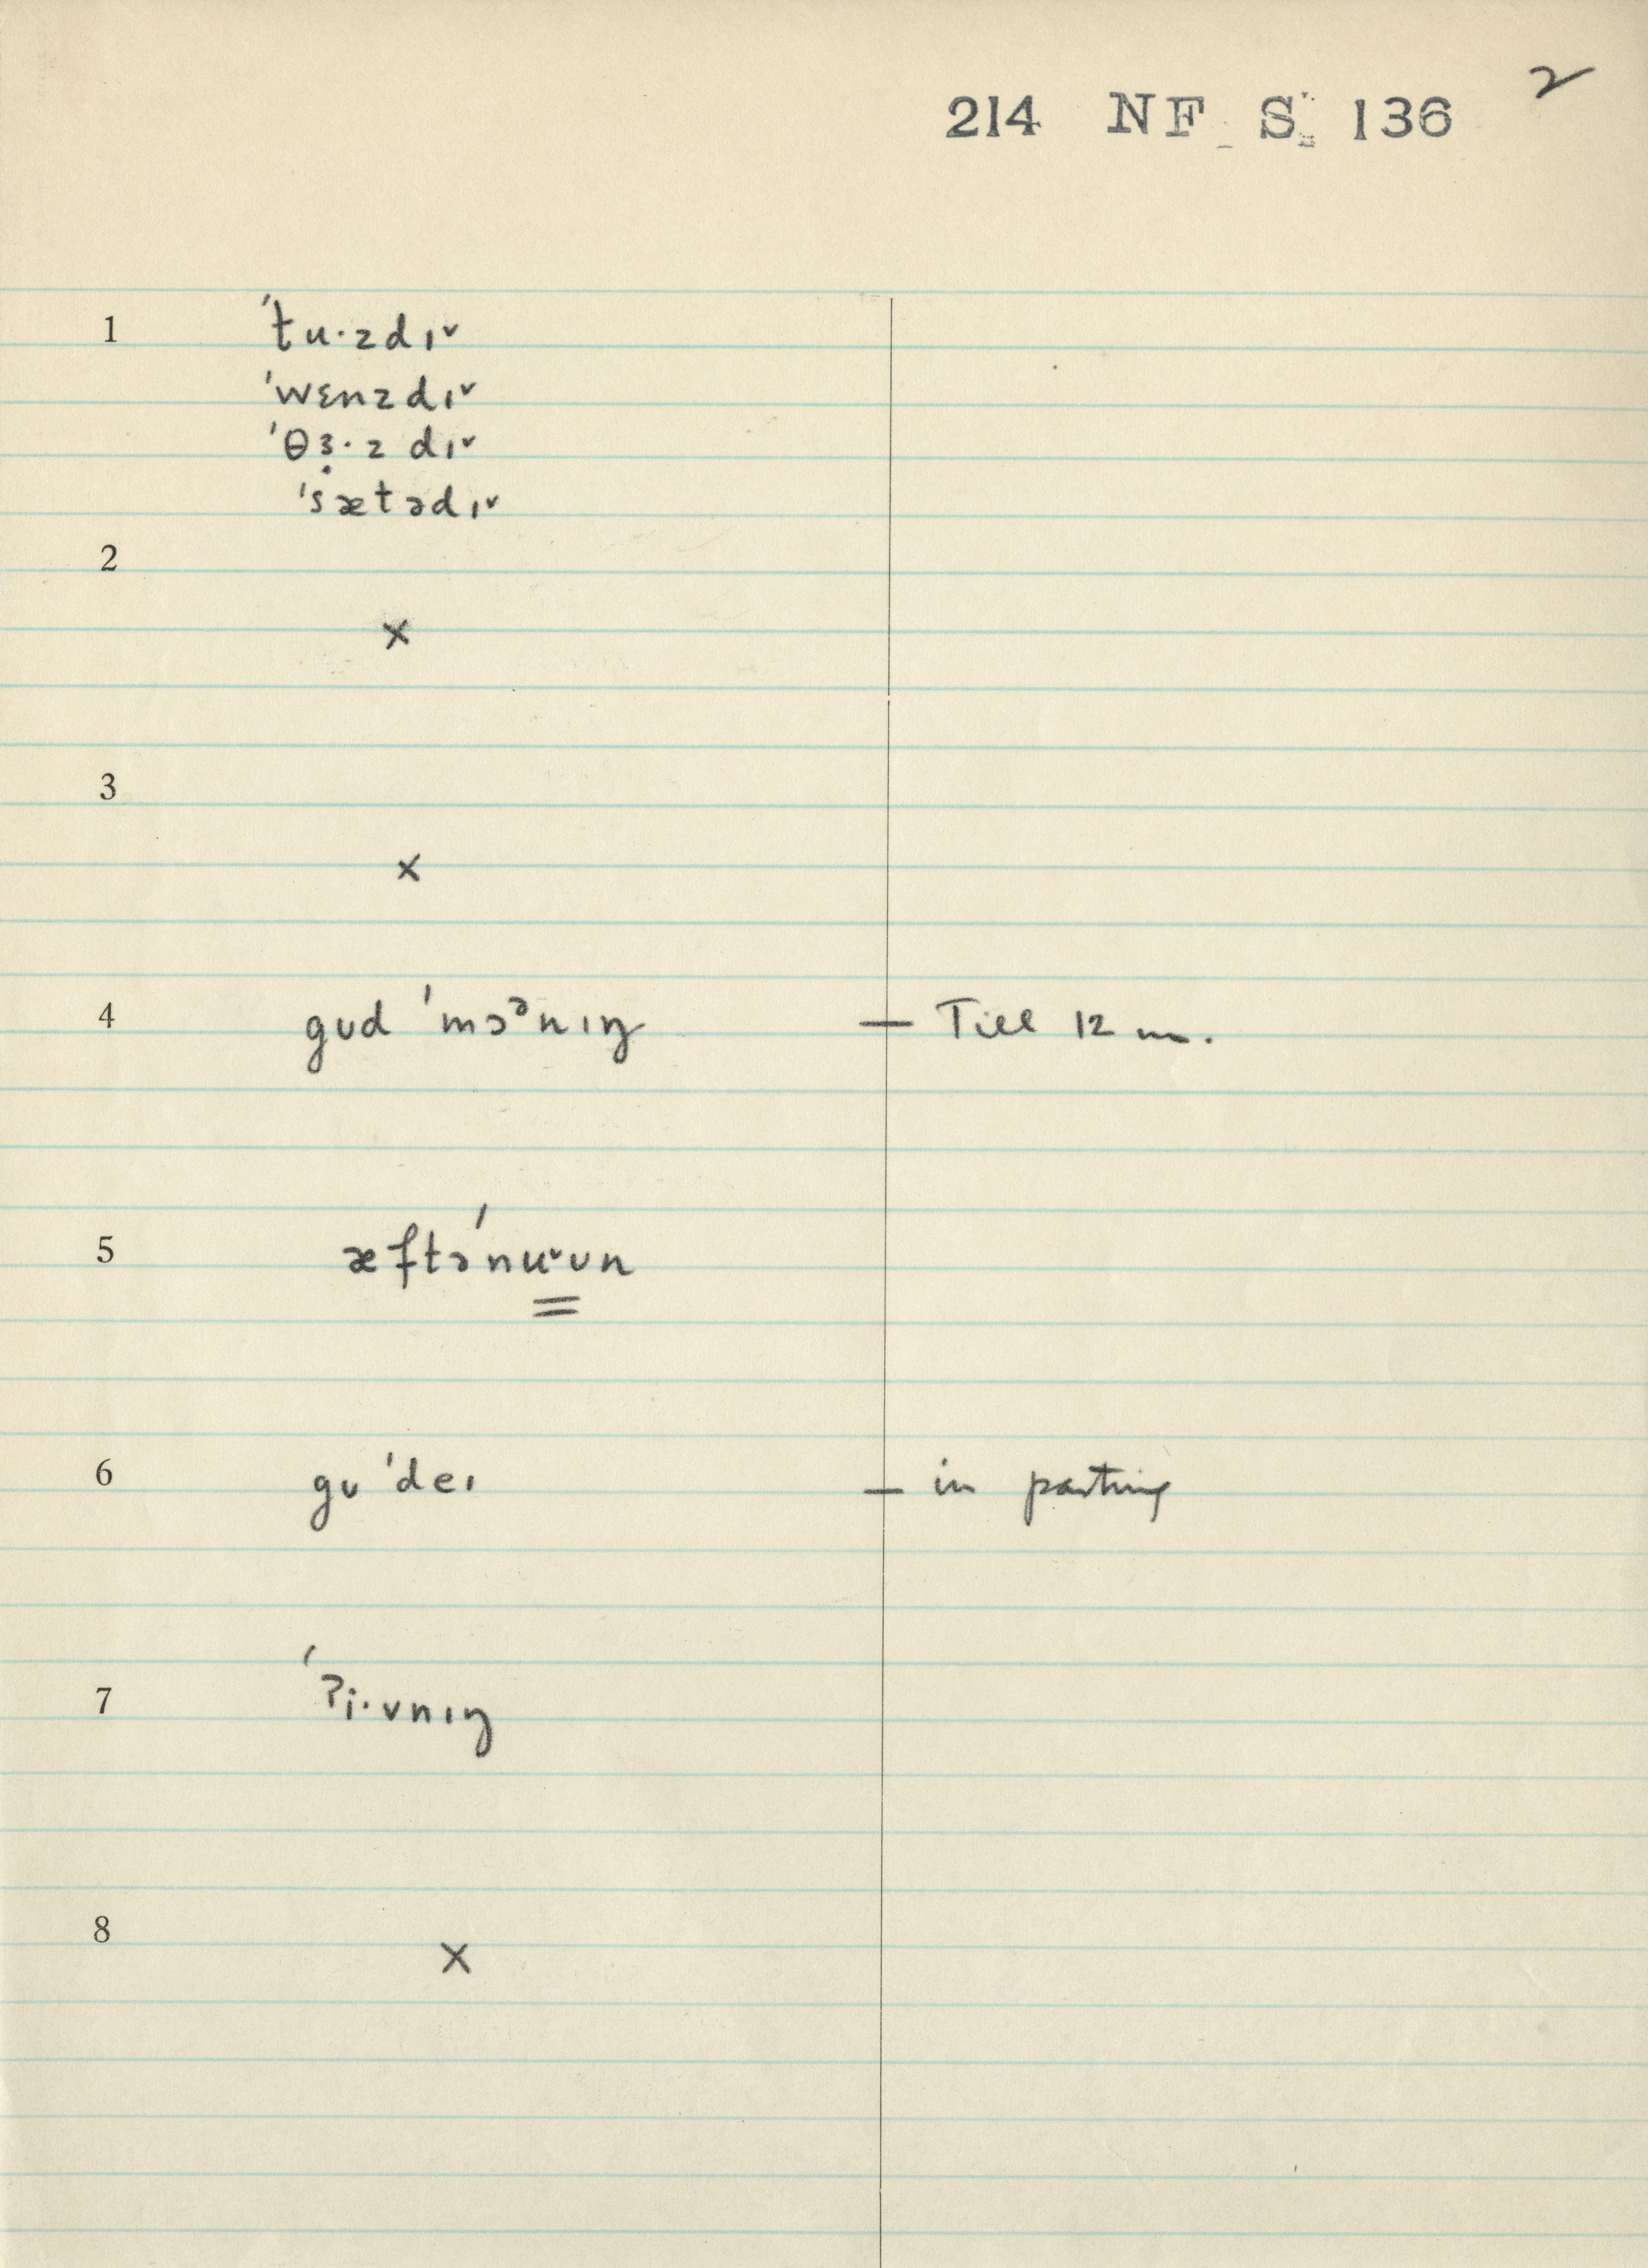 2
214 NF S 136
1 ˈtu·zdɪ˅
ˈwɛnzdɪ˅
ˈθɜ·zdɪ˅
ˈsætədɪ˅
2
×
3
×
4 gʊd ˈmɔᵊnɪŋ — Till 12 m.
5 æftəˈnu˅ʊn
6 gʊ ˈdeɪ — in parting
7 ˈʔi·vnɪŋ
8
×